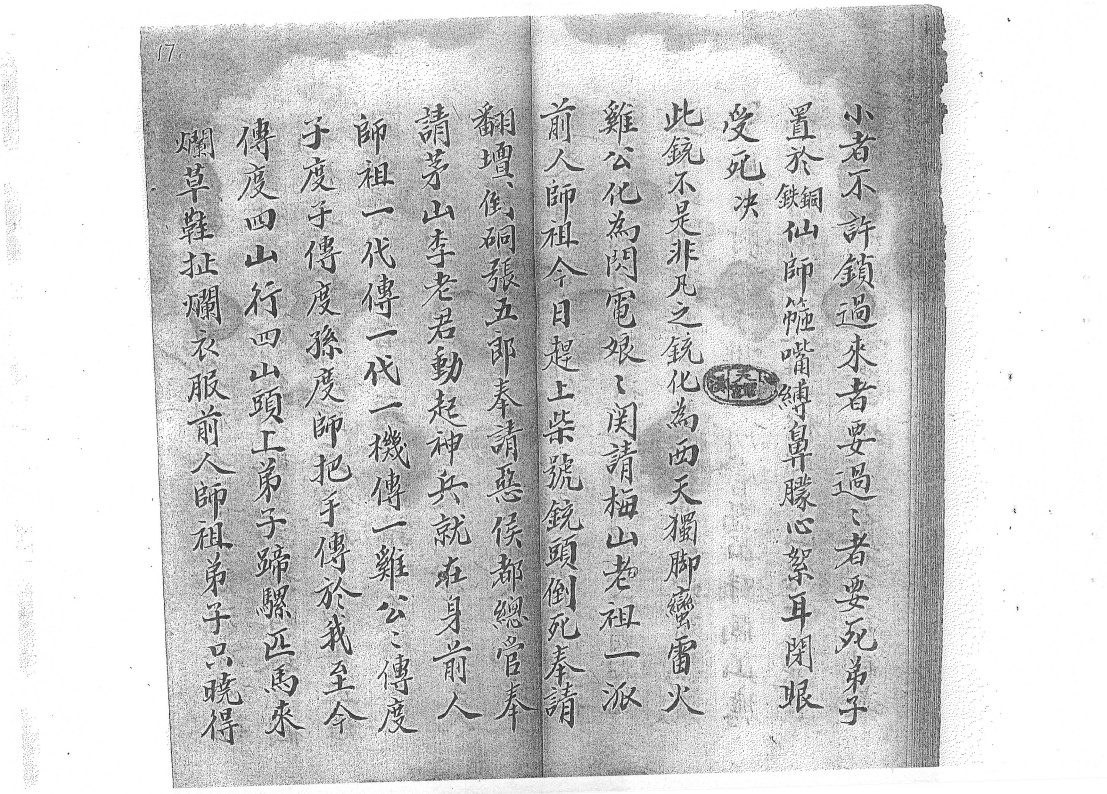 17
小者不許鎖過來者要過〻者要死弟子
置於銅鉄仙師箍嘴縛鼻朦心絮耳閉眼
受死决
此銃不是非凡之銃化為西天獨脚蠻雷火
雞公化為閃電娘〻関請梅山老祖一派
前人師祖今日趕上柴號銃頭倒死奉請
翻壇倒硐張五郎奉請惡侯都總官奉
請茅山李老君動起神兵就在身前人
師祖一代傳一代一機傳一雞公〻傳度
子度子傳度孫度師把手傳於我至今
傳度四山行四山頭上弟子蹄騾匹馬來
爛草鞋扯爛衣服前人師祖弟子只曉得